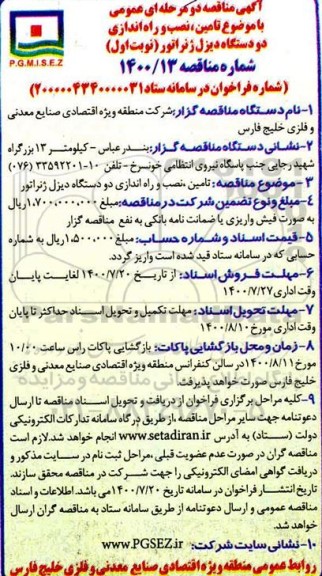 آگهی مناقصه دو مرحله ای عمومی
با موضوع تامین، نصب و راه اندازی
دو دستگاه دیزل ژنراتور (نوبت اول)
P.G.M.I.S.E.Z
شماره مناقصه ۱۴۰۰/۱۳
(شماره فراخوان در سامانه ستاد ۲۰۰۰۰۰۴۳۴۰۰۰۰۰۳۱)
۱-نام دستگاه مناقصه گزار: شرکت منطقه ویژه اقتصادی صنایع معدنی
و فلزی خلیج فارس
۲-نشانی دستگاه مناقصه گزار: بندرعباس - کیلومتر ۱۳ بزرگراه
شهید رجایی جنب پاسگاه نیروی انتظامی خونسرخ - تلفن ۱۰-۳۳۵۹۲۲۰۱ (۰۷۶)
۳-موضوع مناقصه: تامین، نصب و راه اندازی دو دستگاه دیزل ژنراتور
۴-مبلغ و نوع تضمین شرکت در مناقصه: مبلغ ۱،۷۰۰،۰۰۰،۰۰۰ ریال
به صورت فیش واریزی یا ضمانت نامه بانکی به نفع مناقصه گزار
۵-قیمت اسناد و شماره حساب: مبلغ ۱،۵۰۰،۰۰۰ ریال به شماره
حسابی که در سامانه ستاد قید شده است واریز گردد.
۶-مهلت فروش اسناد: از تاریخ ۱۴۰۰/۷/۲۰ لغایت پایان
وقت اداری ۱۴۰۰/۷/۲۷
۷-مهلت تحویل اسناد: مهلت تکمیل و تحویل اسناد حداکثر تا پایان
وقت اداری مورخ ۱۴۰۰/۸/۱۰
۸-زمان و محل بازگشایی پاکات: بازگشایی پاکات راس ساعت ۱۰/۰۰
مورخ ۱۴۰۰/۸/۱۱ در سالن کنفرانس منطقه ویژه اقتصادی صنایع معدنی و فلزی
خلیج فارس صورت خواهد پذیرفت.
۹-کلیه مراحل برگزاری فراخوان از دریافت و تحویل اسناد مناقصه تا ارسال
دعوتنامه جهت سایر مراحل مناقصه، از طریق درگاه سامانه تدارکات الکترونیکی
دولت (ستاد) به آدرس www.setadiran.ir انجام خواهد شد. لازم است
مناقصه گران در صورت عدم عضویت قبلی، مراحل ثبت نام در سایت مذکور و
دریافت گواهی امضای الکترونیکی را جهت شرکت در مناقصه محقق سازند.
تاریخ انتشار فراخوان در سامانه تاریخ ۱۴۰۰/۷/۲۰ می باشد. اطلاعات و اسناد
مناقصه عمومی و ارسال دعوتنامه از طریق سامانه ستاد به مناقصه گران ارسال
خواهد شد.
۱۰-نشانی سایت شرکت: www.PGSEZ.ir
روابط عمومی منطقه ویژه اقتصادی صنایع معدنی و فلزی خلیج فارس